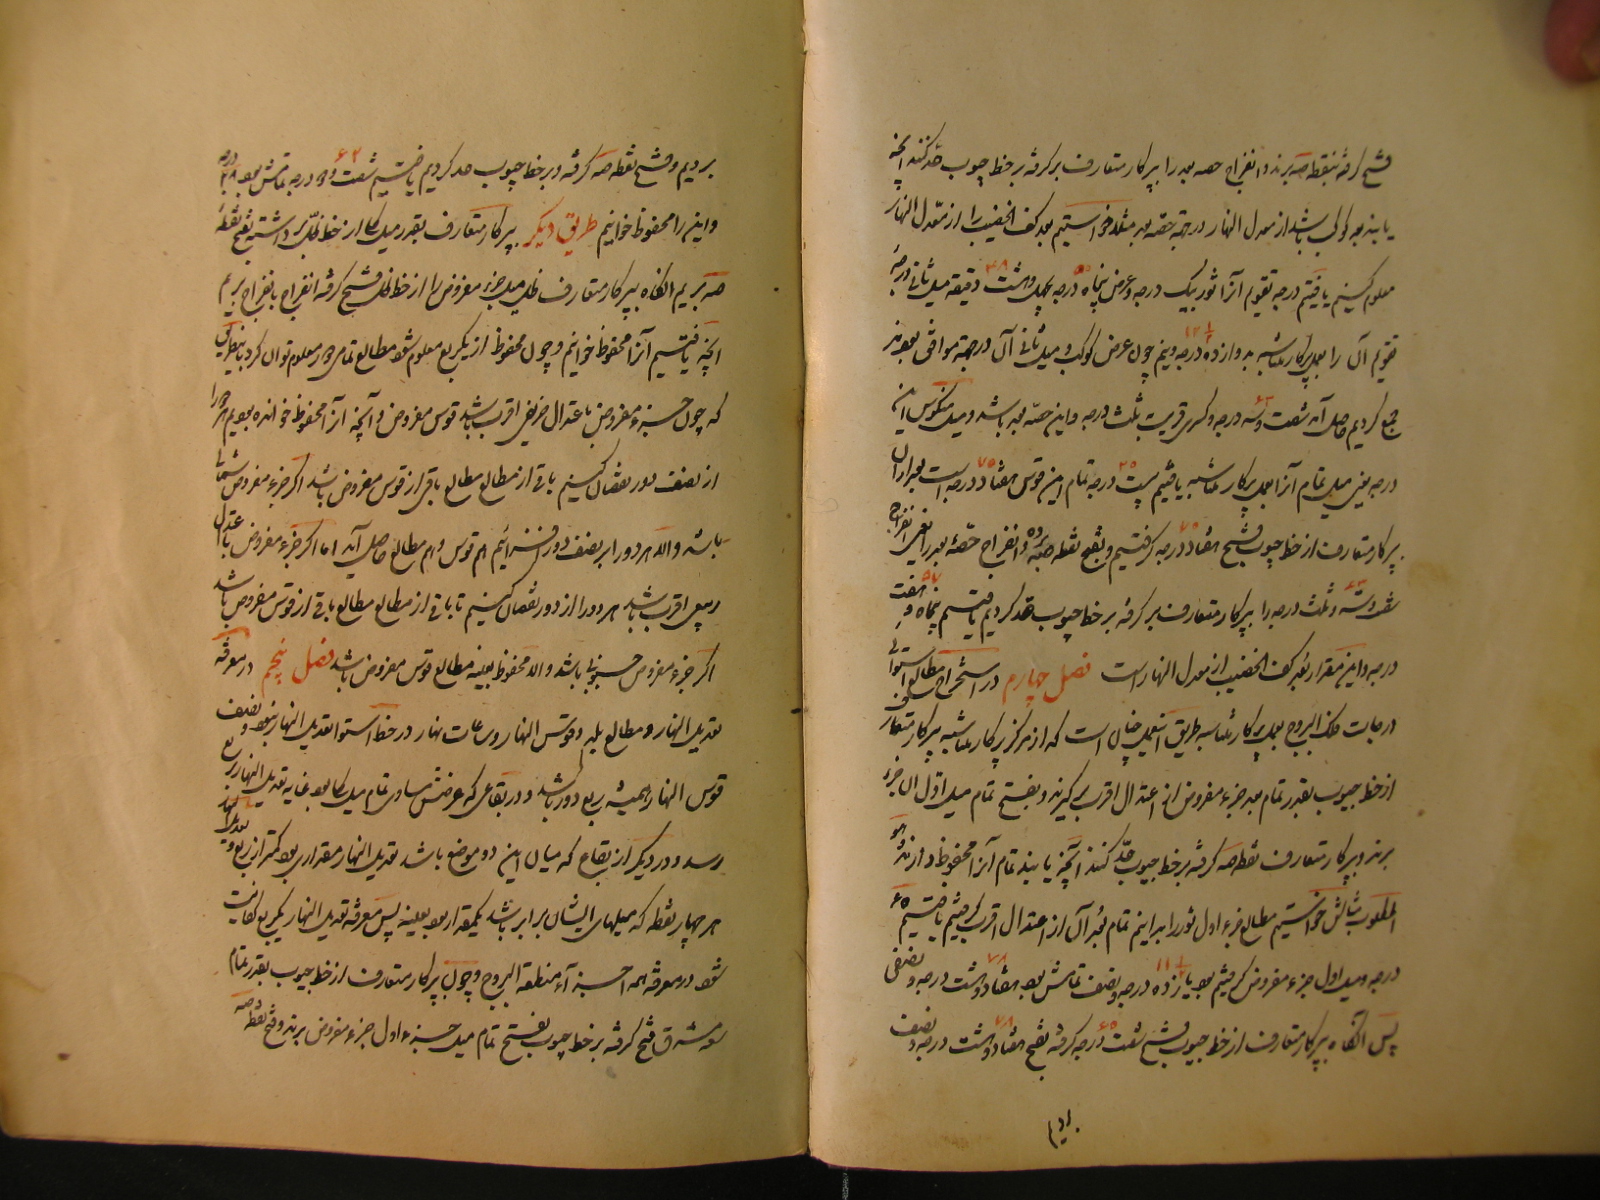 فتح گرفته بنقطه صه برند و انفراج حصه بعد را بپرکار متعارف برگرفته بر خط جیوب حد کنند آنچه
یابند بعد کوکب باشد از معدل النهار در جهة حصه بعد مثلا خواستیم بعد کف الخضیب را از معدل النهار
معلوم کنیم یافتیم درجه تقویم آنرا ثور بیک درجه و عرض پنجاه درجه چهل و هشت دقیقه میل ثانی درجه
تقویم آن را بعمل پرکار متناسبه دوازده درجه و نیم چون عرض کوکب و میل ثانی آن در جهة موافق بودند
جمع کردیم حاصل آمد شصت و سه درجه و کسری قریب بثلث درجه و این حصه بعد باشد و میل منکوس این
درجه یعنی میل تمام آنرا بعمل پرکار متناسبه یافتیم بیست درجه تمام این قوس هفتاد درجه است بعد از آن
بپرکار متعارف از خط جیوب فتح هفتاد درجه گرفتیم و بفتح نقطه صه برده و انفراج حصه بعد را یعنی انفراج
شصت و سه و ثلث درجه را بپرکار متعارف برگرفته بر خط جیوب حد کردیم یافتیم پنجاه و هفت
درجه و این مقدار بعد کف الخضیب از معدل النهار است فصل چهارم در استخراج مطالع استوائی
درجات فلک البروج بعمل پرکار متناسبه طریق این عمل چنان است که از مرکز پرکار متناسبه بپرکار متعارف
از خط جیوب بقدر تمام بعد جزء مفروض از اعتدال اقرب برگیرند و بفتح تمام میل اول آن جزء
برند و بپرکار متعارف نقطه صه گرفته بر خط جیوب حد کنند آنچه یابند تمام آنرا محفوظ دارند و هو
المطلوب مثالش خواستیم مطالع جزء اول ثور را بدانیم تمام بعد آن از اعتدال اقرب گرفتیم یافتیم ۶۰
درجه و میل اول جزء مفروض گرفتیم بود یازده درجه و نصف تمامش بود هفتاد و هشت درجه و نصفی
پس آنگاه بپرکار متعارف از خط جیوب فتح شصت درجه گرفته بفتح هفتاد و هشت درجه و نصف
بردیم
بردیم و فتح نقطه صه گرفته و بر خط جیوب حد کردیم یافتیم شصت و دو درجه تمامش بود ۲۸ درجه
و این را محفوظ خوانیم طریق دیگر بپرکار متعارف بقدر میل کلی از خط ظل برداشته بفتح نقطهٔ
صه بریم آنگاه بپرکار متعارف ظل میل جزء مفروض را از خط ظل فتح گرفته انفراج بانفراج بریم
آنچه یافتیم آنرا محفوظ خوانیم و چون محفوظ از یک ربع معلوم شود مطالع تمامی دور معلوم توان کرد باینطریق
که چون جزء مفروض باعتدال خریفی اقرب باشد قوس مفروض و آنچه آنرا محفوظ خوانده بودیم هر دو را
از نصف دور نقصان کنیم باقی از مطالع مطالع باقی از قوس مفروض باشد اگر جزء مفروض شمالی
باشد والا هر دو را بر نصف دور افزائیم هم قوس و هم مطالع حاصل آید اما اگر جزء مفروض باعتدال
ربیعی اقرب باشد هر دو را از دور نقصان کنیم تا باقی از مطالع مطالع باقی از قوس مفروض باشد
اگر جزء مفروض جنوبی باشد والا محفوظ بعینه مطالع قوس مفروض باشد فصل پنجم در معرفة
تعدیل النهار و مطالع بلد و قوس النهار و ساعات نهار در خط استوا تعدیل النهار نبود و نصف
قوس النهار همیشه ربع دور باشد و در بقاعی که عرضش مساوی تمام میل کلی بود غایه تعدیل النهار بربع
رسد و در دیگر از بقاع که میان این دو موضع باشد تعدیل النهار مقداری بود کمتر از ربع و تعدیل النهار
هر چهار نقطه که میلهای ایشان برابر باشد یکمقدار بود بعینه پس معرفة تعدیل النهار یک ربع کفایت
شود در معرفة همه اجزاء منطقة البروج و چون بپرکار متعارف از خط جیوب بقدر تمام
سعه مشرق فتح گرفته بر خط جیوب بفتح تمام میل جزء اول جزء مفروض برند و فتح نقطه صه